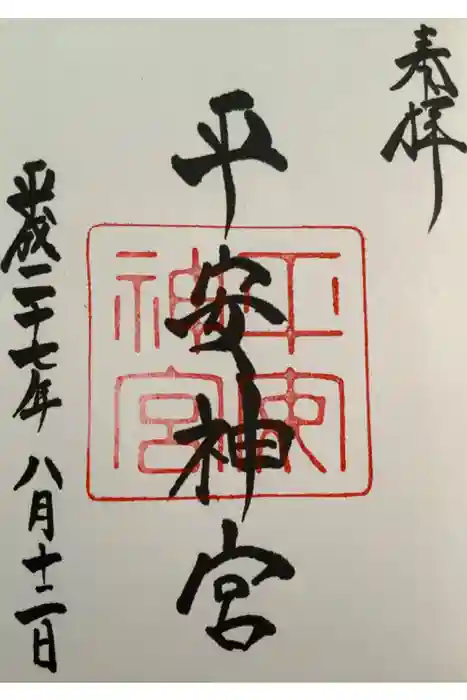 奉拝
平安神宮
平安神宮
平成二十七年八月十二日